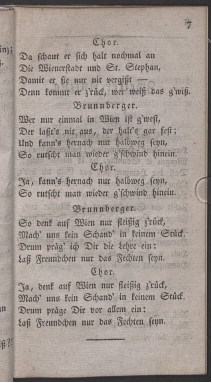 7
Chor.
Da schaut er sich halt nochmal an
Die Wienerstadt und St. Stephan,
Damit er sie nur nit vergißt —
Denn kommt er z'rück, wer weiß das g'wiß.
Brunnberger.
Wer nur einmal in Wien ist g'west,
Der laßt's nit aus, der halt's gar fest;
Und kann's hernach nur halbweg seyn,
So rutscht man wieder g'schwind hinein.
Chor.
Ja, kann's hernach nur halbweg seyn,
So rutscht man wieder g'schwind hinein.
Brunnberger.
So denk auf Wien nur fleißig z'rück,
Mach' uns kein Schand' in keinem Stück.
Drum präg' ich Dir die Lehre ein:
Laß Freundchen nur das Fechten seyn.
Chor.
Ja, denk auf Wien nur fleißig z'rück,
Mach' uns kein Schand' in keinem Stück.
Drum präge Dir vor allem ein:
Laß Freundchen nur das Fechten seyn.